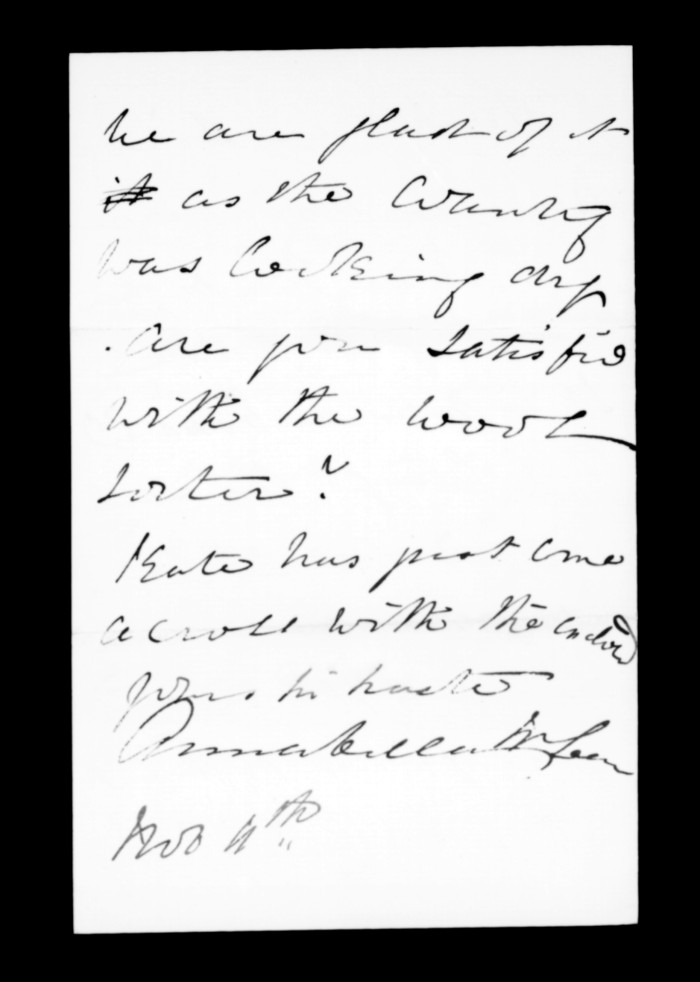 we are glad of it
it as the Country
was looking dry
. are you satisfied
with the wool
sorter?
Kate has just come
across with the enclosed
yours in haste
Annabella McLean
Nov 4th